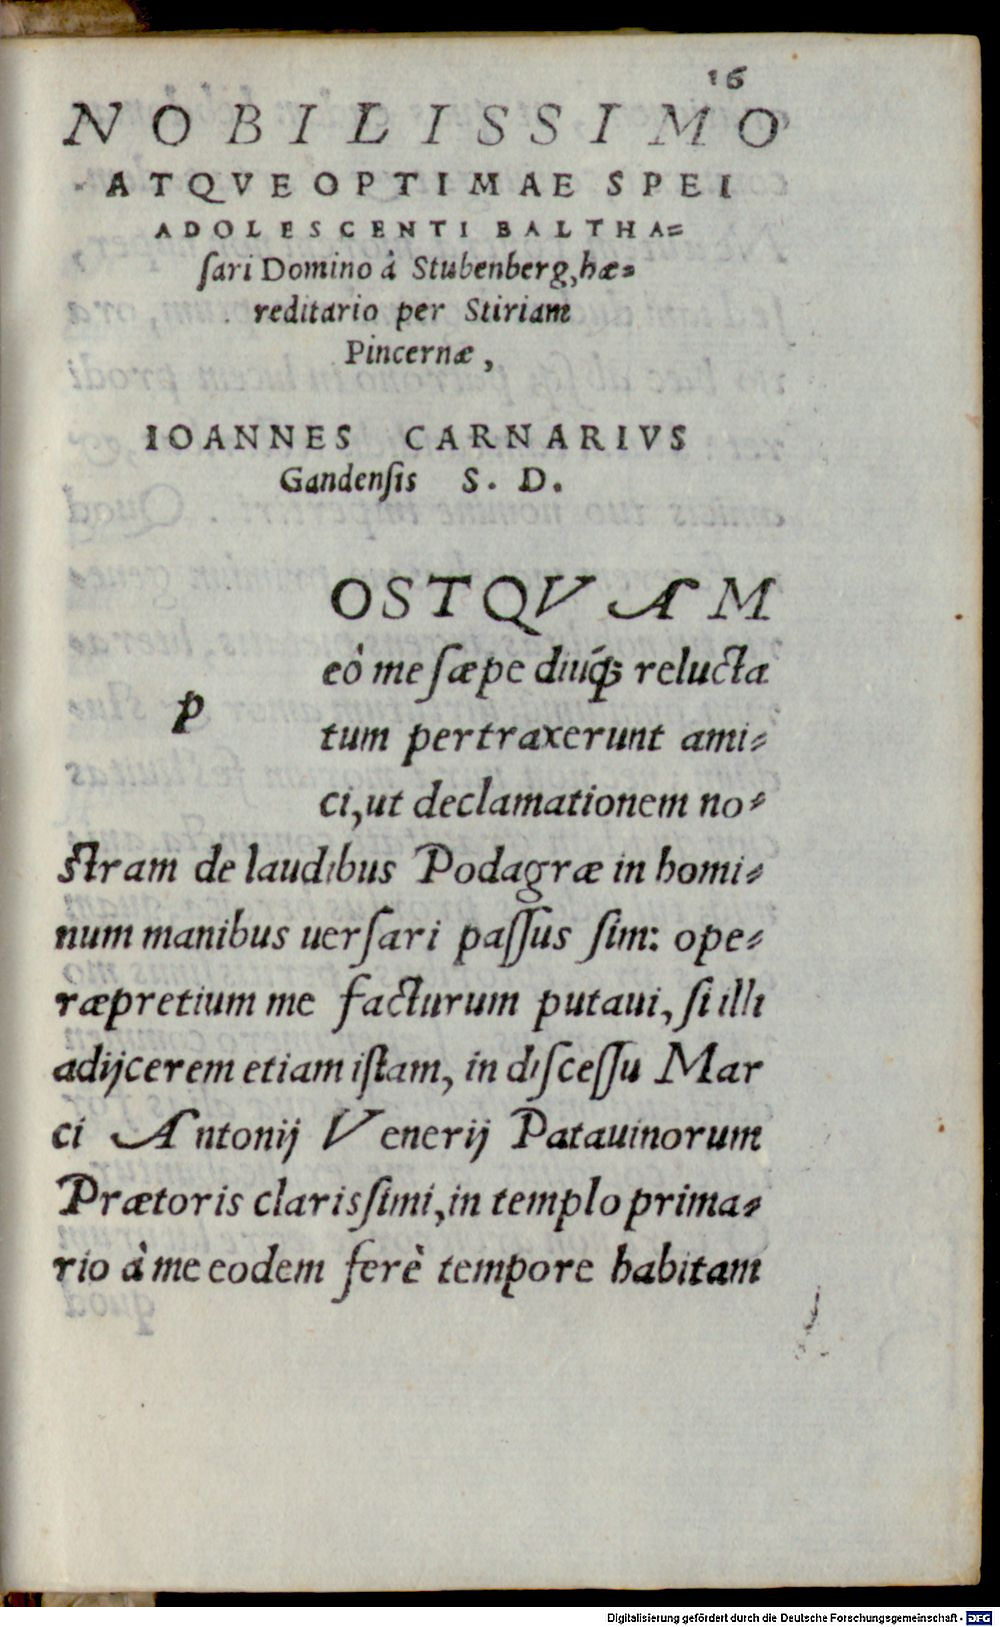 16
NOBILISSIMO
ATQVE OPTIMAE SPEI
ADOLESCENTI BALTHA=
ſari Domino à Stubenberg, hæ=
reditario per Stiriam
Pincernæ,
IOANNES CARNARIVS
Gandenſis S. D.
pOSTQVAM
eò me ſæpe diuq́ꝫ relucta
tum pertraxerunt ami=
ci, ut declamationem no=
ſtram de laudibus Podagræ in homi=
num manibus uerſari paſſus ſim: ope=
ræpretium me facturum putaui, ſi illi
adijcerem etiam iſtam, in diſceſſu Mar
ci Antonij Venerij Patauinorum
Prætoris clarisſimi, in templo prima=
rio à me eodem ferè tempore habitam
Digitalisierung gefördert durch die Deutsche Forschungsgemeinschaft - DFG